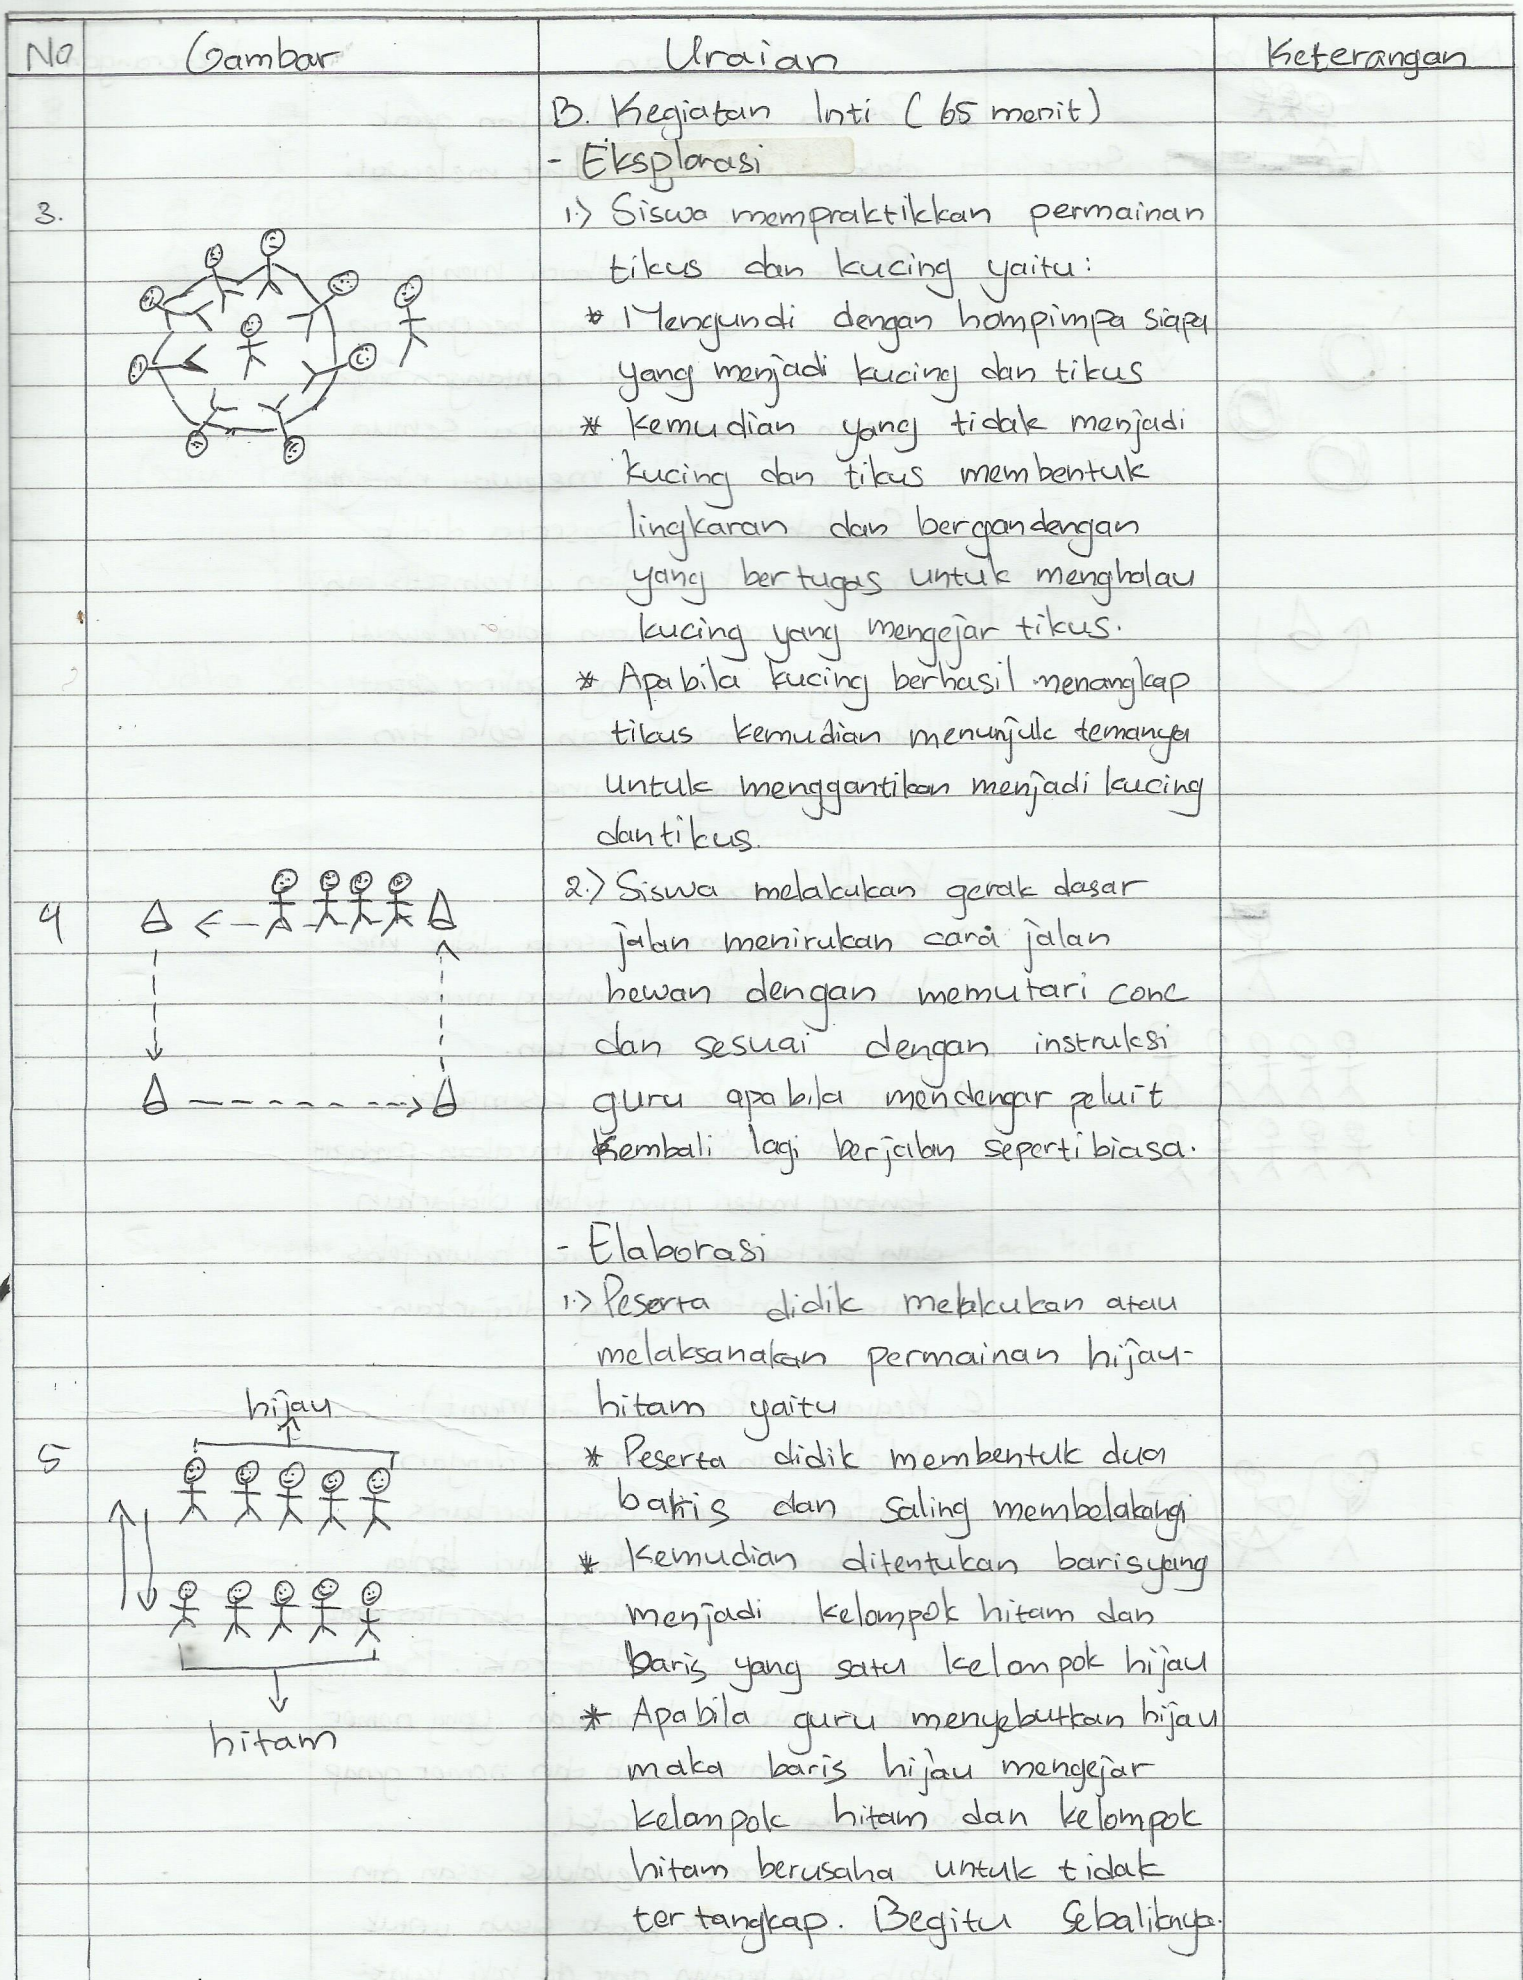 No Gambar Uraian Keterangan
B. Kegiatan Inti (65 menit)
- Eksplorasi
3. 1.) Siswa mempraktikkan permainan
tikus dan kucing yaitu:
* Mengundi dengan hompimpa siapa
yang menjadi kucing dan tikus
* Kemudian yang tidak menjadi
kucing dan tikus membentuk
lingkaran dan bergandengan
yang bertugas untuk menghalau
kucing yang mengejar tikus.
* Apabila kucing berhasil menangkap
tikus kemudian menunjuk temanya
untuk menggantikan menjadi kucing
dan tikus.
4 2.) Siswa melakukan gerak dasar
jalan menirukan cara jalan
hewan dengan memutari cone
dan sesuai dengan instruksi
guru apabila mendengar peluit
Kembali lagi berjalan seperti biasa.
- Elaborasi
1.) Peserta didik melakukan atau
melaksanakan permainan hijau-
hitam yaitu
hijau
5 * Peserta didik membentuk dua
baris dan saling membelakangi
* Kemudian ditentukan baris yang
menjadi kelompok hitam dan
baris yang satu kelompok hijau
* Apabila guru menyebutkan hijau
hitam
maka baris hijau mengejar
kelompok hitam dan kelompok
hitam berusaha untuk tidak
tertangkap. Begitu Sebaliknya.